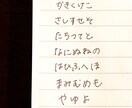 かきくけこ
さしすせそ
たちつてと
なにぬねの
はひふへほ
まみむめも
やゆよ